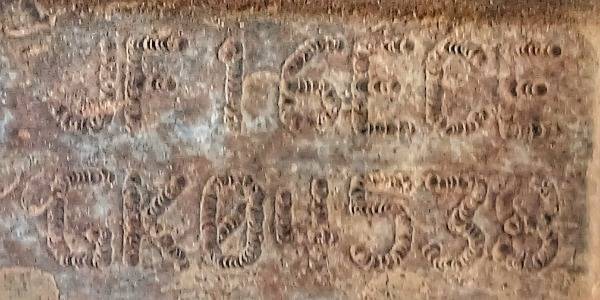 JF1GECE
GK04538